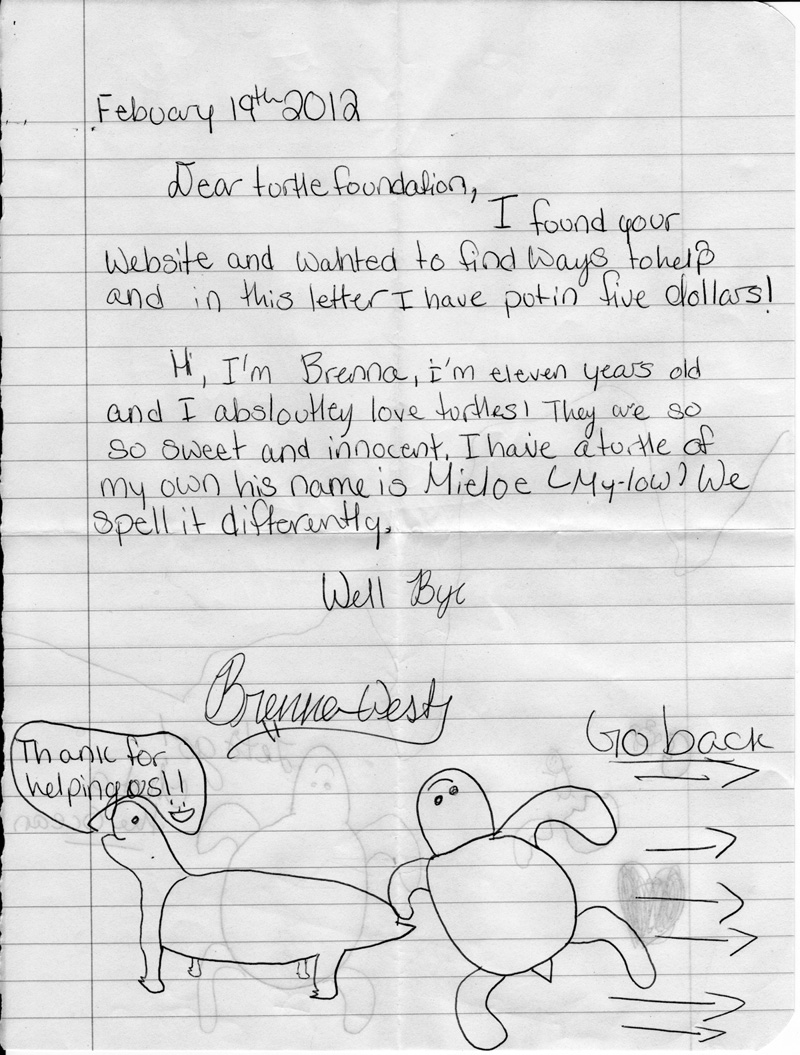 Febuary 19th 2012
Dear turtle foundation,
I found your
website and wanted to find ways to help
and in this letter I have put in five dollars!
Hi, I'm Brenna, i'm eleven years old
and I absloutley love turtles! They are so
so sweet and innocent. I have a turtle of
my own his name is Mieloe (My-low) We
spell it differently.
Well Bye
Brenna West
Go back
Thank for
helping us!!